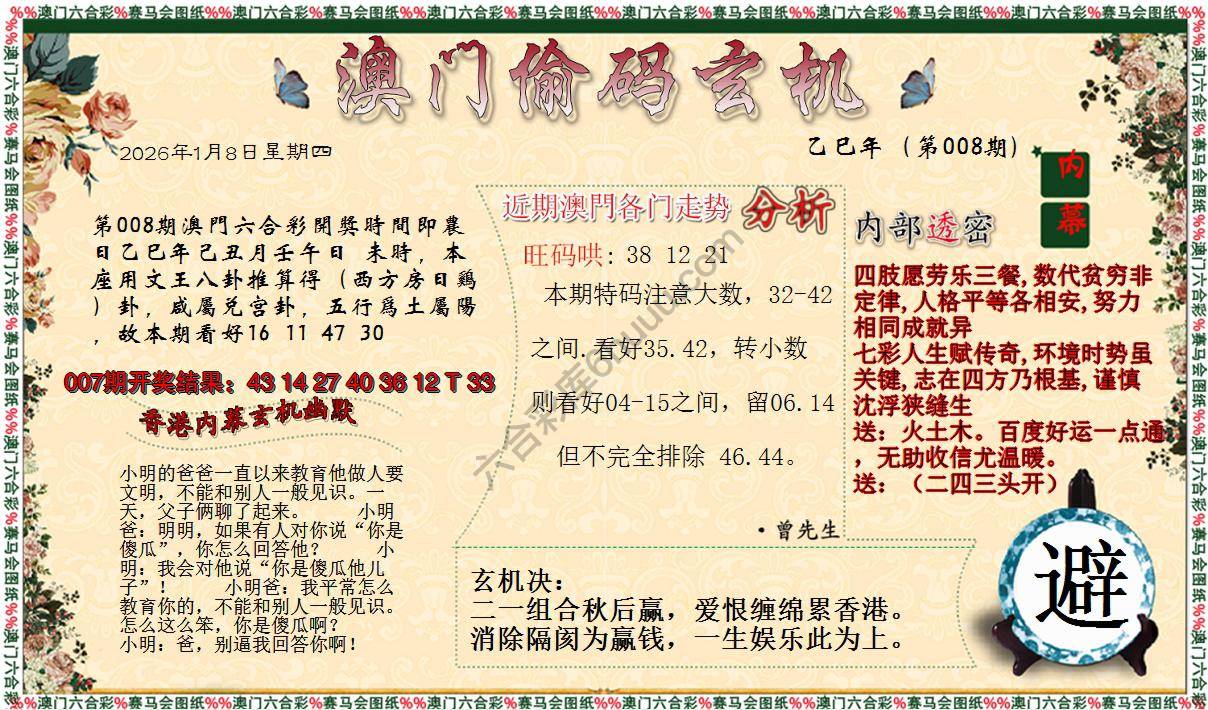 %%澳门六合彩%赛马会图纸%%澳门六合彩%赛马会图纸%%澳门六合彩%赛马会图纸%%澳门六合彩%赛马会图纸%%澳门六合彩%赛马会图纸%%澳门六合彩%赛马会图纸%%
澳门偷码玄机
2026年1月8日星期四
乙巳年（第008期）
内
幕
第008期澳門六合彩開獎時間即農
日乙巳年己丑月壬午日 未時，本
座用文王八卦推算得（西方房日鷄
）卦，咸屬兑宫卦，五行爲土屬陽
，故本期看好16 11 47 30
007期开奖结果：43 14 27 40 36 12 T 33
香港内幕玄机幽默
小明的爸爸一直以来教育他做人要
文明，不能和别人一般见识。一
天，父子俩聊了起来。 小明
爸：明明，如果有人对你说“你是
傻瓜”，你怎么回答他？ 小
明：我会对他说“你是傻瓜他儿
子”！ 小明爸：我平常怎么
教育你的，不能和别人一般见识。
怎么这么笨，你是傻瓜啊？
小明：爸，别逼我回答你啊！
近期澳門各门走势 分析
旺码哄: 38 12 21
本期特码注意大数，32-42
之间.看好35.42，转小数
则看好04-15之间，留06.14
但不完全排除 46.44。
·曾先生
内部透密
四肢愿劳乐三餐,数代贫穷非
定律,人格平等各相安,努力
相同成就异
七彩人生赋传奇,环境时势虽
关键,志在四方乃根基,谨慎
沈浮狭缝生
送：火土木。百度好运一点通
，无助收信尤温暖。
送：（二四三头开）
玄机决：
二一组合秋后赢，爱恨缠绵累香港。
消除隔阂为赢钱，一生娱乐此为上。
避
%%澳门六合彩%赛马会图纸%%澳门六合彩%赛马会图纸%%澳门六合彩%赛马会图纸%%澳门六合彩%赛马会图纸%%澳门六合彩%赛马会图纸%%澳门六合彩%赛马会图纸%%